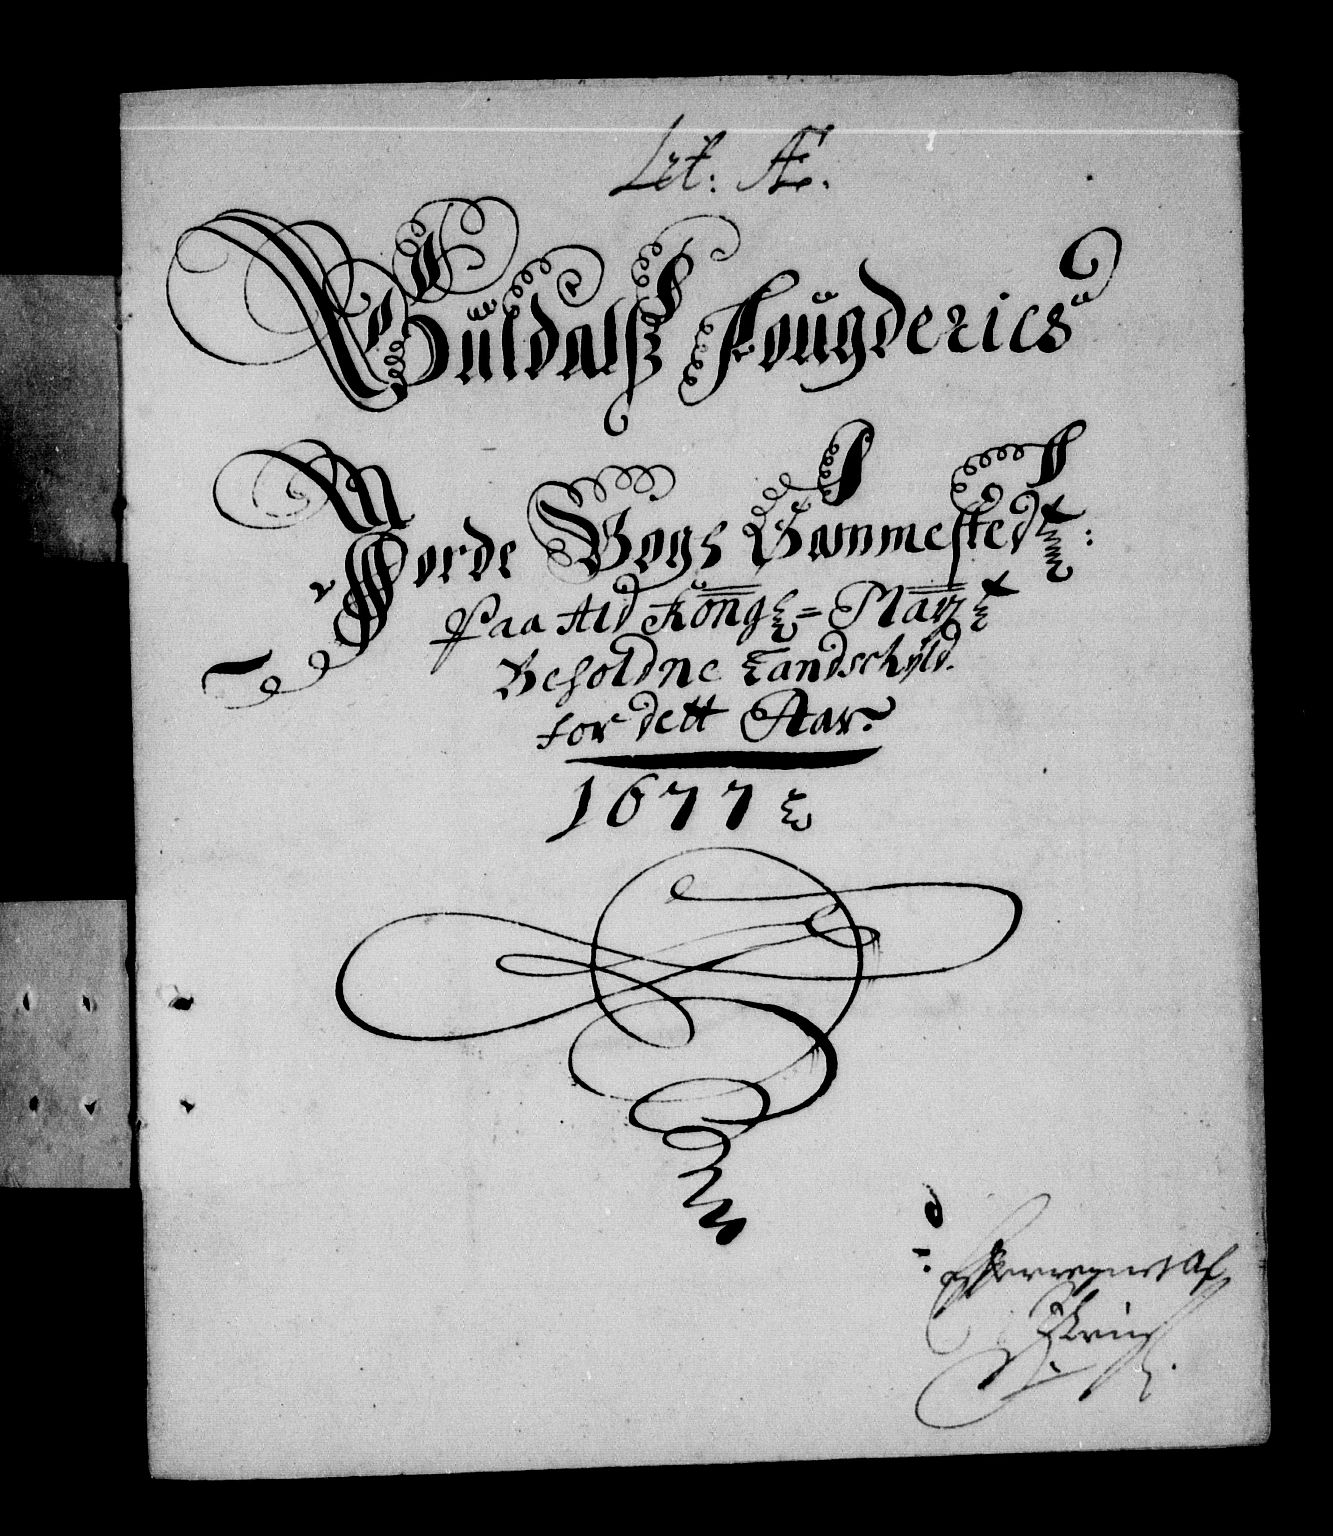 Let: Æ.
Güldalß Fougderies
Jorde Bogs Gammested:
Paa Ald Kong: = May:
Beholdne Landschÿld.
for dett Aar.
1677